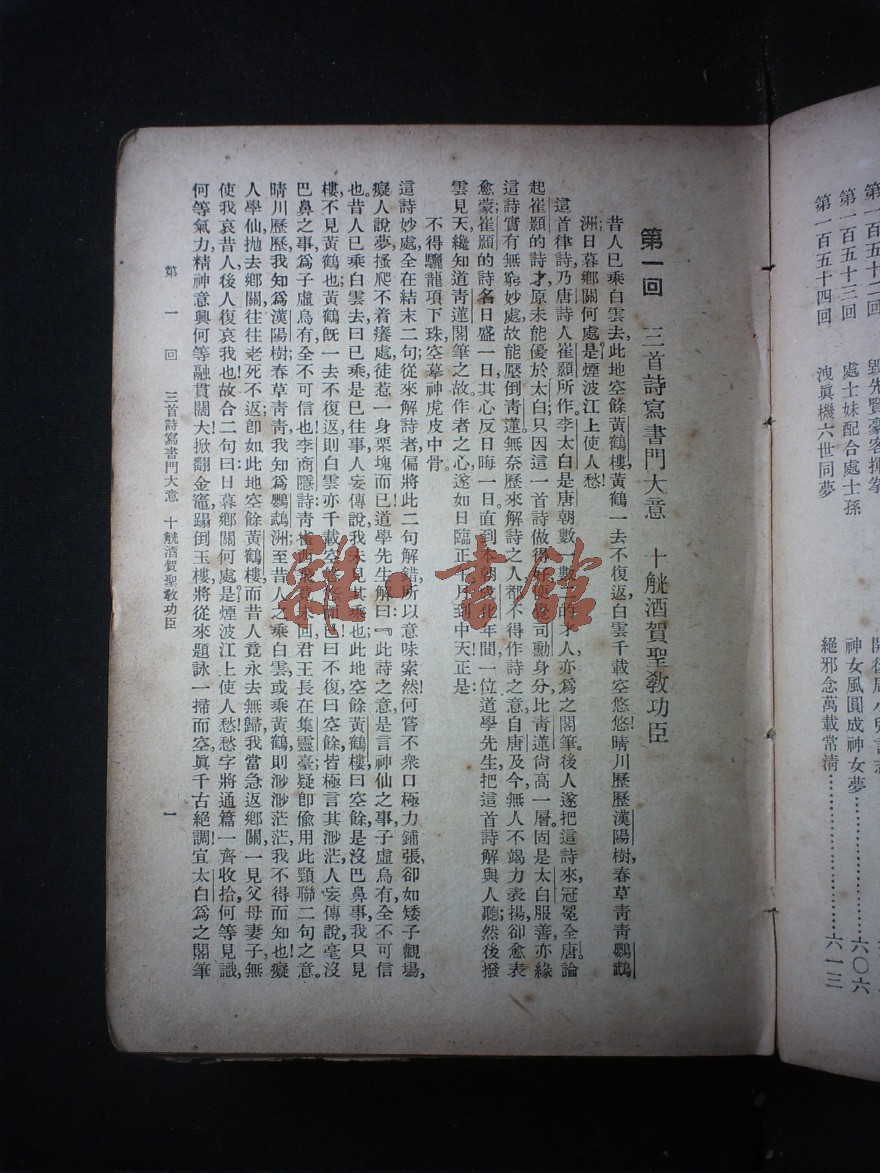 第一百五十二回 毀先賢豪客揮拳
第一百五十三回 處士妹配合處士孫 神女風圓成神女夢⋯⋯⋯⋯⋯⋯六〇六
第一百五十四回 洩眞機六世同夢 絕邪念萬載常清⋯⋯⋯⋯⋯⋯六一三
第一回 三首詩寫書門大意 十觥酒賀聖敎功臣
昔人已乘白雲去,此地空餘黃鶴樓,黃鶴一去不復返,白雲千載空悠悠!晴川歷歷漢陽樹,春草青青鸚鵡
洲;日暮鄉關何處是?煙波江上使人愁!
這首律詩,乃唐詩人崔顥所作。李太白是唐朝數一數二的才人,亦爲之閣筆。後人遂把這詩來,冠冕全唐。論
起崔顥的詩才,原未能優於太白,只因這一首詩做得好,便覺司勳身分,比青蓮尙高一層。固是太白服善,亦緣
這詩實有無窮妙處,故能壓倒青蓮。無奈歷來解詩之人,都不得作詩之意,自唐及今,無人不竭力表揚,卻愈表
愈蒙,崔顥的詩名日盛一日,其心反日晦一日。直到本朝成化年間,一位道學先生,把這首詩解與人聽,然後撥
雲見天,纔知道青蓮閣筆之故。作者之心,遂如日臨正午,月到中天。正是:
不得驪龍項下珠,空摹神虎皮中骨。
這詩妙處,全在結末二句,從來解詩者,偏將此二句解錯,所以意味索然!何嘗不衆口極力鋪張,卻如矮子觀場,
癡人說夢,搔爬不着癢處,徒惹一身栗塊而已!道學先生解曰:『此詩之意,是言神仙之事,子虛烏有,全不可信
也。昔人已乘白雲去,曰已乘,是已往事,人妄傳說,我未見其乘也。此地空餘黃鶴樓,曰空餘,是沒巴鼻事,我只見
樓,不見黃鶴也。黃鶴旣一去不復返,則白雲亦千載空悠悠而已!曰不復,曰空餘,皆極言其渺茫,人妄傳說,毫沒
巴鼻之事,爲子虛烏有,全不可信也!李商隱詩:青雀西飛竟未回,君王長在集靈臺,疑卽偸用此頸聯二句之意。
晴川歷歷,我知爲漢陽樹;春草青青,我知爲鸚鵡洲;至昔人之乘白雲,或乘黃鶴,則渺渺茫茫,我不得而知也!癡
人學仙,拋去鄉關,往往老死不返;卽如此地空餘黃鶴樓,而昔人竟永去無歸,我當急返鄉關,一見父母妻子,無
使我哀昔人,後人復哀我也!故合二句曰:日暮鄉關何處是?煙波江上使人愁!愁字將通篇一齊收拾,何等見識,
何等氣力,精神意興,何等融貫闊大!掀翻金竈,蹋倒玉樓,將從來題詠一掃而空,眞千古絕調!宜太白爲之閣筆
第一回 三首詩寫書門大意 十觥酒賀聖敎功臣 一
雜·書館